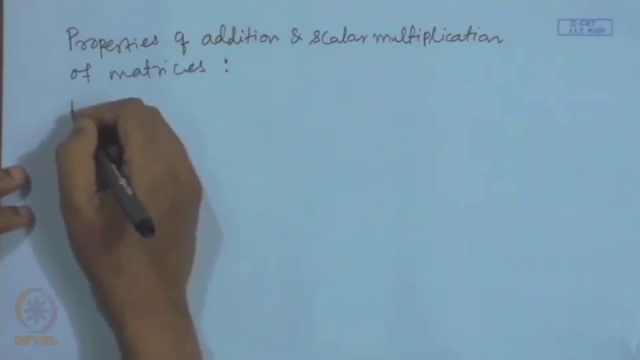 Properties of addition & scalar multiplication
of matrices :
© CET
I.I.T. KGP
NPTEL